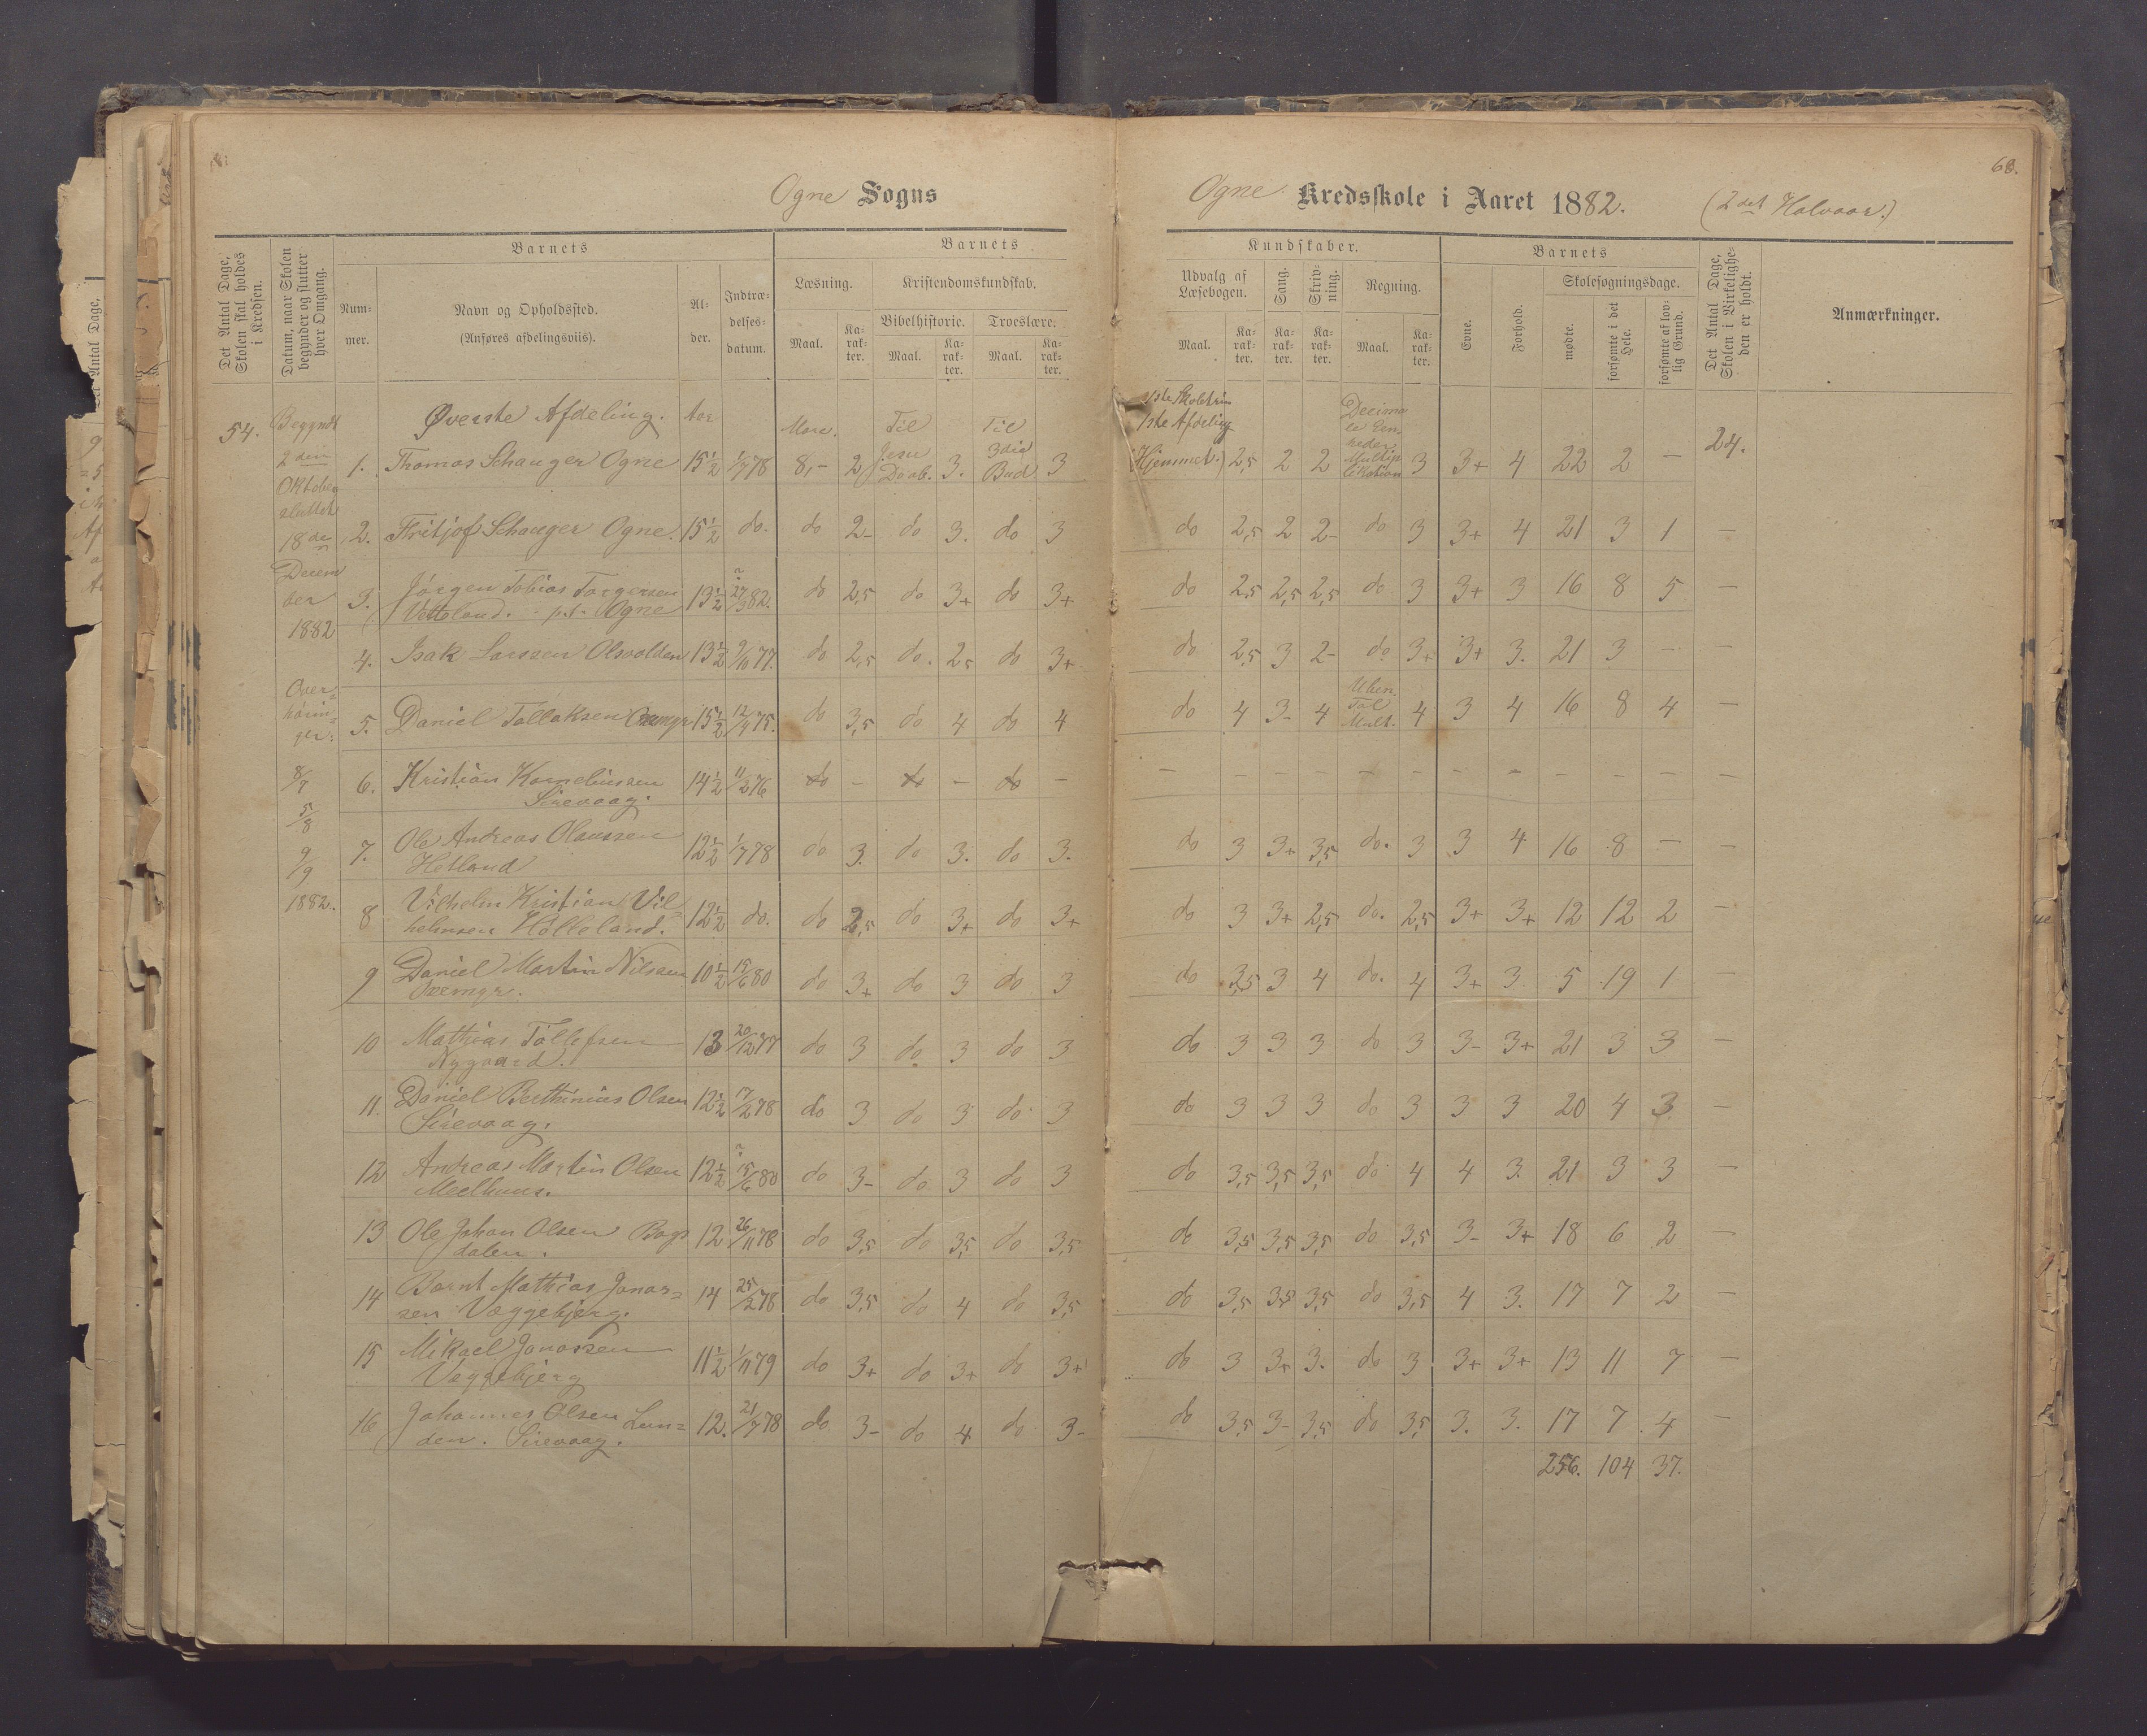 68.
Ogne Sogns
Ogne Kredsskole i Aaret 1882. (2det Halvaar.)
Det Antal Dage, Skolen skal holdes i Kredsen.
Datum, naar Skolen begynder og slutter hver Omgang.
Barnets
Num-mer.
Navn og Opholdssted.
(Anføres afdelingsviis).
Al-der.
Indtræ-delses-datum.
Barnets
Læsning.
Maal.
Ka-rak-ter.
Kristendomskundskab.
Bibelhistorie.
Maal.
Ka-rak-ter.
Troeslære.
Maal.
Ka-rak-ter.
Kundskaber.
Udvalg af Læsebogen.
Maal.
Ka-rak-ter.
Sang.
Ka-rak-ter.
Skriv-ning.
Ka-rak-ter.
Regning.
Maal.
Ka-rak-ter.
Barnets
Evne.
Forhold.
Skolesøgningsdage.
mødte.
forsømte i det Hele.
forsømte af lov-lig Grund.
Det Antal Dage, Skolen i Virkelighe-den er holdt.
Anmærkninger.
54.
Begyndt
2den
Oktober
sluttet
18de
Decem
ber
1882
Over-
hørin-
ger:
8/7
5/8
9/9
1882.
Øverste Afdeling. Aar
1. Thomas Schanger Ogne 15½ 1/7 78 8,- 2 Til Jesu Daab. 3. Til 3die Bud 3 1ste Skoletrin 1ste Afdeling (Hjemmet.) 2,5 2 2 3 3+ 4 22 2 — 24.
2. Fritjof Schanger Ogne. 15½ do. do 2- do 3. do 3 do 2,5 2 2- do 3 3+ 4 21 3 1 —
3. Jørgen Tobias Torgersen
Vetteland. p.t. Ogne 13½ 27/3 82. do 2,5 do 3+ do 3+ do 2,5 2,5 2,5 do 3 3+ 3 16 8 5 —
4. Isak Larssen Olsvolden 13½ 9/10 77. do 2,5 do. 2,5 do 3+ do 2,5 3 2- do. 3+ 3+ 3. 21 3 - —
5. Daniel Tollaksen 15½ 12/4 75. do 3,5 do 4 do 4 do 4 3- 4 Uben. Tal Mult. 4 3 4 16 8 4 —
6. Kristian Korneliussen
Sirevaag. 14½ 11/2 76 do - do - do - — - - - - - - - - - - —
7. Ole Andreas Olaussen
Hetland 12½ 1/7 78 do 3. do 3. do 3. do 3 3+ 3,5 do. 3 3 4 16 8 — —
8 Vilhelm Kristian Vil-
helmsen Hølleland. 12½ do. do 2,5 do 3+ do 3+ do 3 3+ 2,5 do. 2,5 3+ 3+ 12 12 2 —
9 Daniel Martin Nilsen
10½ 15/6 80 do 3+ do 3 do 3 do 3,5 3 4 do. 4 3+ 3. 5 19 1 —
10 Mathias Tollefsen
Nygaard. 13 20/12 77 do 3 do. 3 do 3 do 3 3 3 do 3 3- 3+ 21 3 3 —
11. Daniel Berthinius Olsen
Sirevaag. 12½ 17/2 78 do 3 do 3 do 3 do 3 3 3 do 3 3 3 20 4 3 —
12 Andreas Martin Olsen
Medhuus. 12½ 15/6 80 do 3- do 3 do 3 do 3,5 3,5 3,5 do 4 4 3. 21 3 3 —
13 Ole Johan Olsen Bogs
dalen. 12 26/11 78 do 3,5 do 3,5 do 3,5 do 3,5 3,5 3,5 do 3,5 3- 3+ 18 6 2 —
14 Bornt Mathias Jonas-
sen Vaggebjerg. 14 25/2 78 do 3,5 do 4 do 3,5 do 3,5 3,5 3,5 do 3,5 4 3. 17 7 2 —
15 Mikael Jonassen
Vaggebjerg 11½ 1/11 79 do 3+ do 3+ do 3+ do 3 3+ 3. do 3 3+ 3+ 13 11 7 —
16 Johannes Olsen Lun-
den. Sirevaag. 12. 21/7 78 do 3- do 4 do 3- do 3,5 3- 3,5 do 3,5 3. 3. 17 7 4 —
256. 104 37.